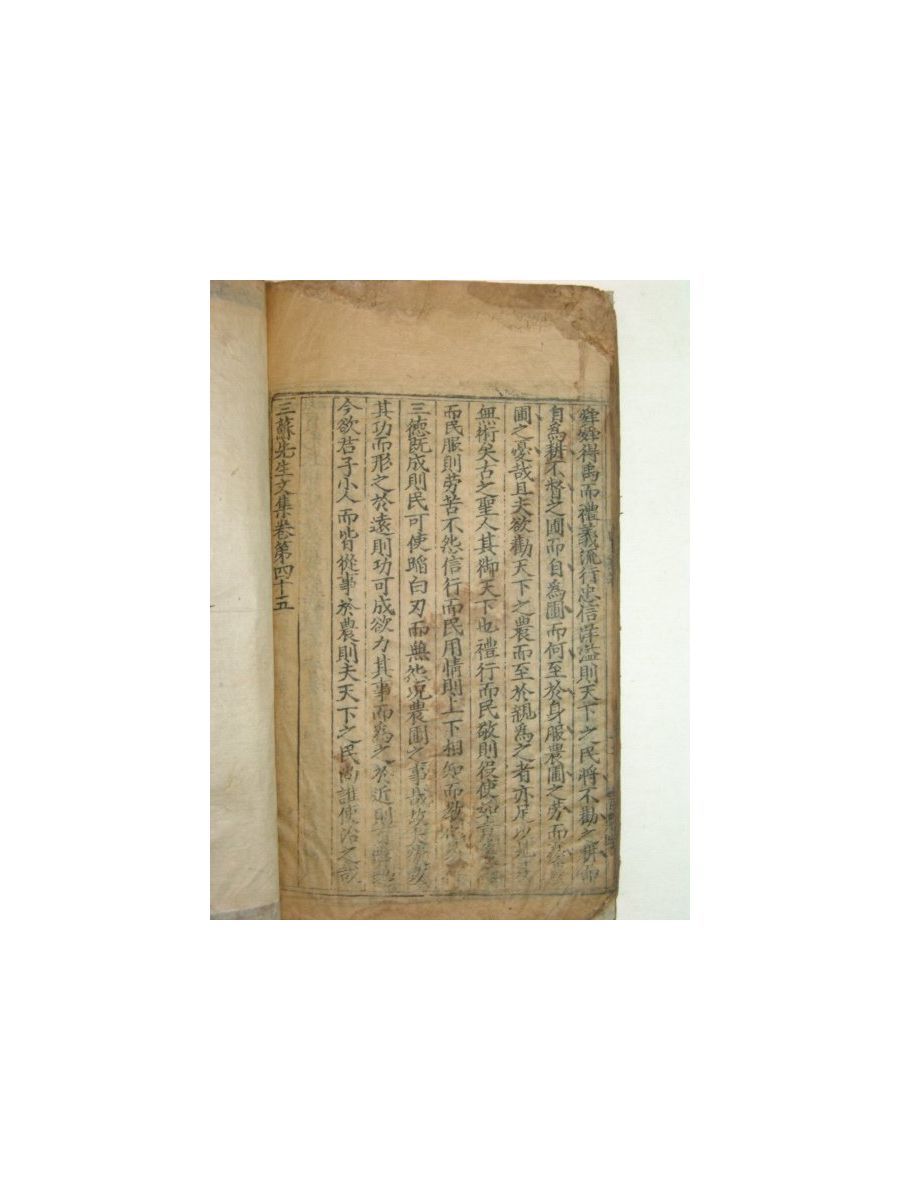 舜舜得禹而禮義流行忠信洋溢則天下之民將不勸之耕而
自為耕不督之圃而自為圃而何至於身服農圃之勞而
圃之憂哉且夫欲勸天下之農而至於親為之者亦足以見其
無術矣古之聖人其御天下也禮行而民敬則役使如
而民服則勞苦不怨信行而民用情則上下相知而
三德既成則民可使蹈白刃而無怨況農圃之事哉
其功而形之於遠則功可成欲力其事而為之於近則
今欲君子小人而皆從事於農則夫天下之民尚誰使治之哉
三蘇先生文集卷第四十五